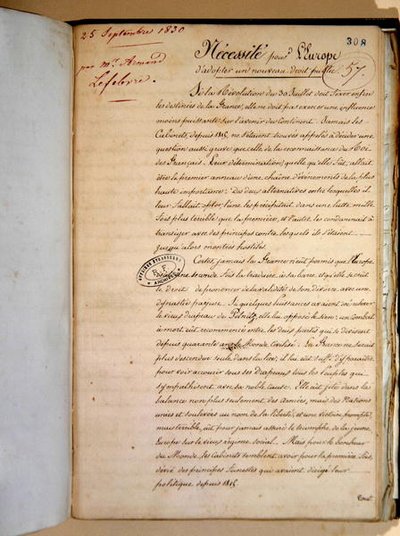 25 Septembre 1830
par Mr. Armand
Lefebvre.
308
57.
Nécessité pour l'Europe
d'adopter un nouveau droit public
Si la Révolution du 30 Juillet doit fixer enfin
les destinées de la France, elle ne doit pas exercer une influence
moins puissante sur l'avenir du Continent. Jamais les
Cabinets, depuis 1815, ne s'étaient trouvés appelés à décider une
question aussi grave que celle de la reconnaissance du Roi
des Français. Leur détermination, quelle qu'elle fût, allait
être le premier anneau d'une chaîne d'événements de la plus
haute importance. Des deux alternatives entre lesquelles il
leur fallait opter l'une les précipitait dans une lutte mille
fois plus terrible que la première, et l'autre les condamnait à
transiger avec des principes contre lesquels ils s'étaient
jusqu'alors montrés hostiles
Certes, jamais la France n'eût permis que l'Europe
une seconde fois la traduisît à sa barre, et qu'elle se crût
le droit de prononcer de la validité de son divorce avec une
dynastie parjure. Si quelques puissances avaient voulu lever
le vieux drapeau de Pilnitz, elle lui opposé le sien; un combat
à mort eût recommencé entre les deux partis qui se divisent
depuis quarante ans le Monde civilisé. La France ne serait
plus descendue seule dans la lice, il lui eût suffi d'y paraître
pour voir accourir sous ses drapeaux tous les peuples qui
sympathisent avec sa noble cause. Elle eût jeté dans la
balance non plus seulement des Armées, mais des Nations
unies et soulevées au nom de la liberté, et une victoire prompte,
mais terrible, eût pour jamais assuré le triomphe de la jeune
Europe sur le vieux régime social. Mais pour le bonheur
du Monde, les Cabinets semblent avoir pour la première fois
dévié des principes funestes qui avaient dirigé leur
politique depuis 1815